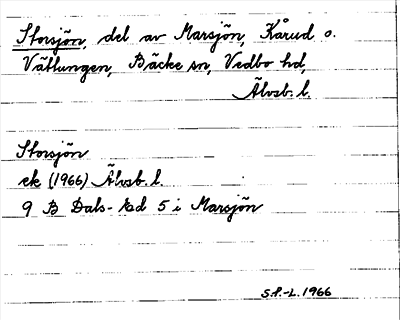 Storsjön, del av Marsjön, Kårud o.
Vätlungen, Bäcke sn, Vedbo hd,
Älvsb. l.
Storsjön
ek (1966) Älvsb. l.
9 B Dals-Ed 5 i Marsjön
S.P.-L. 1966